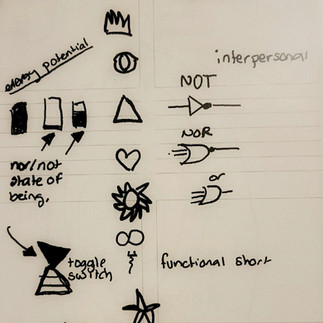 energy potential
interpersonal
NOT
NOR
nor/not
state of
being.
or
toggle
switch
functional short